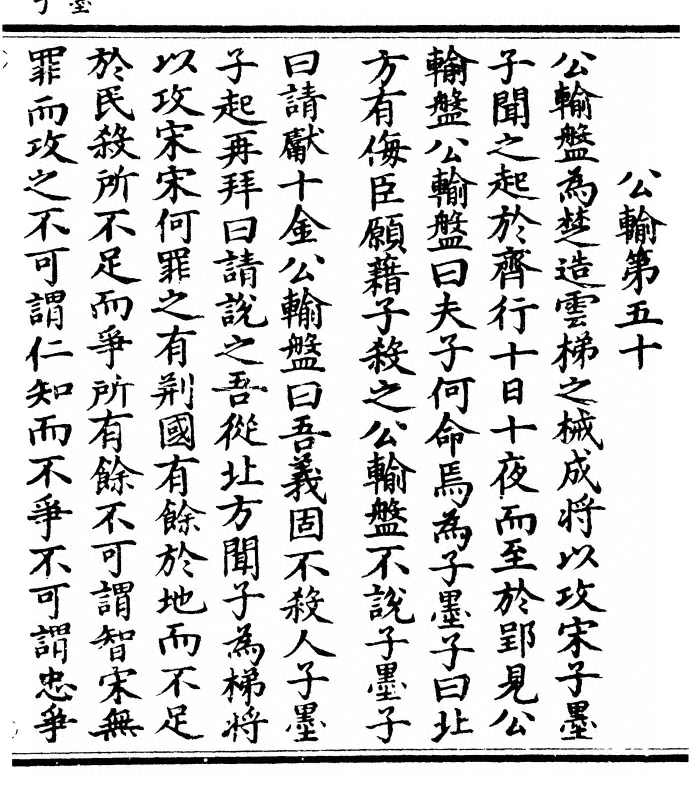 公輸第五十
公輸盤為楚造雲梯之械成将以攻宋子墨
子聞之起於齊行十日十夜而至於郢見公
輸盤公輸盤曰夫子何命焉為子墨子曰北
方有侮臣願藉子殺之公輸盤不說子墨子
曰請獻十金公輸盤曰吾義固不殺人子墨
子起再拜曰請說之吾從北方聞子為梯将
以攻宋宋何罪之有荆國有餘於地而不足
於民殺所不足而爭所有餘不可謂智宋無
罪而攻之不可謂仁知而不爭不可謂忠爭